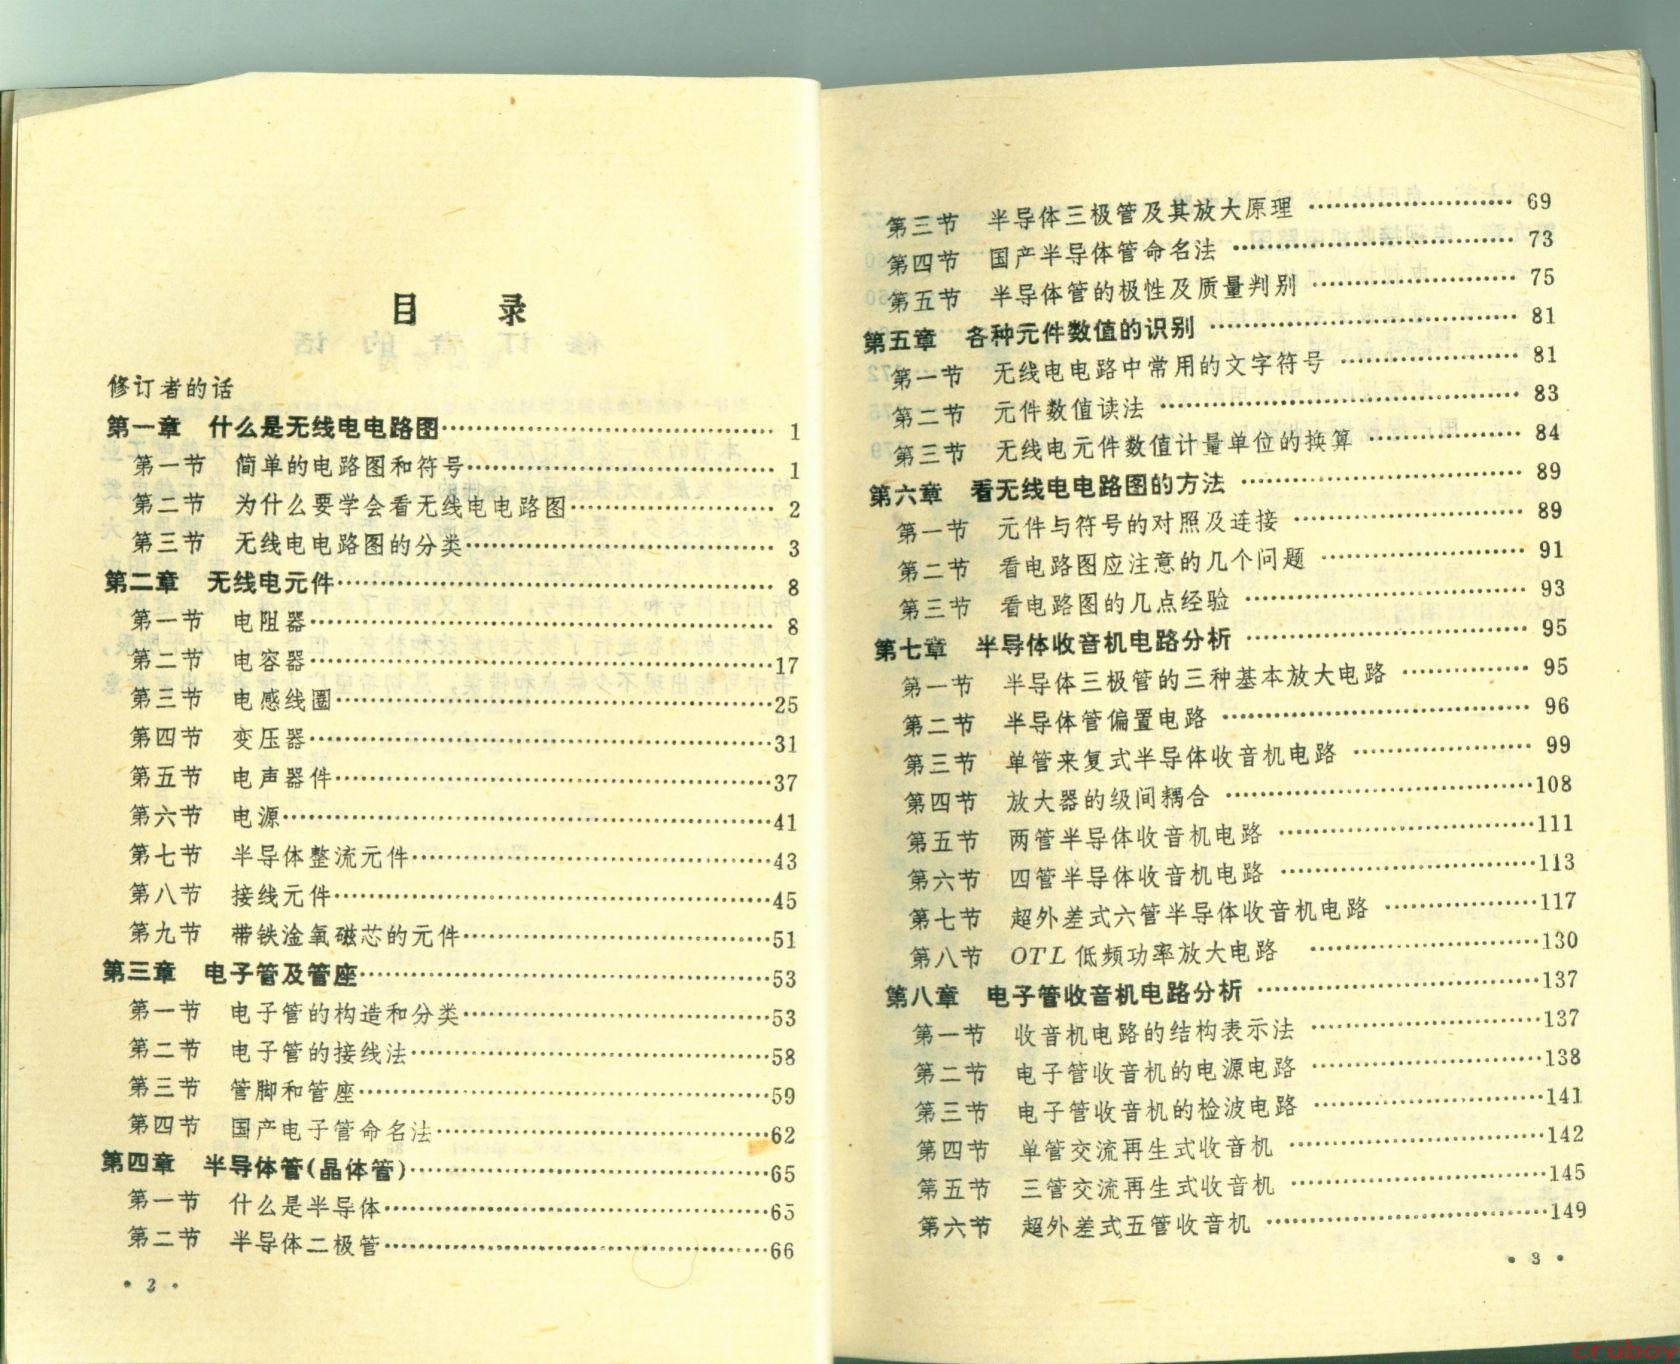 目 录
修订者的话
第一章 什么是无线电电路图 1
第一节 简单的电路图和符号 1
第二节 为什么要学会看无线电电路图 2
第三节 无线电电路图的分类 3
第二章 无线电元件 8
第一节 电阻器 8
第二节 电容器 17
第三节 电感线圈 25
第四节 变压器 31
第五节 电声器件 37
第六节 电源 41
第七节 半导体整流元件 43
第八节 接线元件 45
第九节 带铁淦氧磁芯的元件 51
第三章 电子管及管座 53
第一节 电子管的构造和分类 53
第二节 电子管的接线法 58
第三节 管脚和管座 59
第四节 国产电子管命名法 62
第四章 半导体管(晶体管) 65
第一节 什么是半导体 65
第二节 半导体二极管 66
• 2 •
第三节 半导体三极管及其放大原理 69
第四节 国产半导体管命名法 73
第五节 半导体管的极性及质量判别 75
第五章 各种元件数值的识别 81
第一节 无线电电路中常用的文字符号 81
第二节 元件数值读法 83
第三节 无线电元件数值计量单位的换算 84
第六章 看无线电电路图的方法 89
第一节 元件与符号的对照及连接 89
第二节 看电路图应注意的几个问题 91
第三节 看电路图的几点经验 93
第七章 半导体收音机电路分析 95
第一节 半导体三极管的三种基本放大电路 95
第二节 半导体管偏置电路 96
第三节 单管来复式半导体收音机电路 99
第四节 放大器的级间耦合 108
第五节 两管半导体收音机电路 111
第六节 四管半导体收音机电路 113
第七节 超外差式六管半导体收音机电路 117
第八节 OTL低频功率放大电路 130
第八章 电子管收音机电路分析 137
第一节 收音机电路的结构表示法 137
第二节 电子管收音机的电源电路 138
第三节 电子管收音机的检波电路 141
第四节 单管交流再生式收音机 142
第五节 三管交流再生式收音机 145
第六节 超外差式五管收音机 149
• 3 •
cruboy